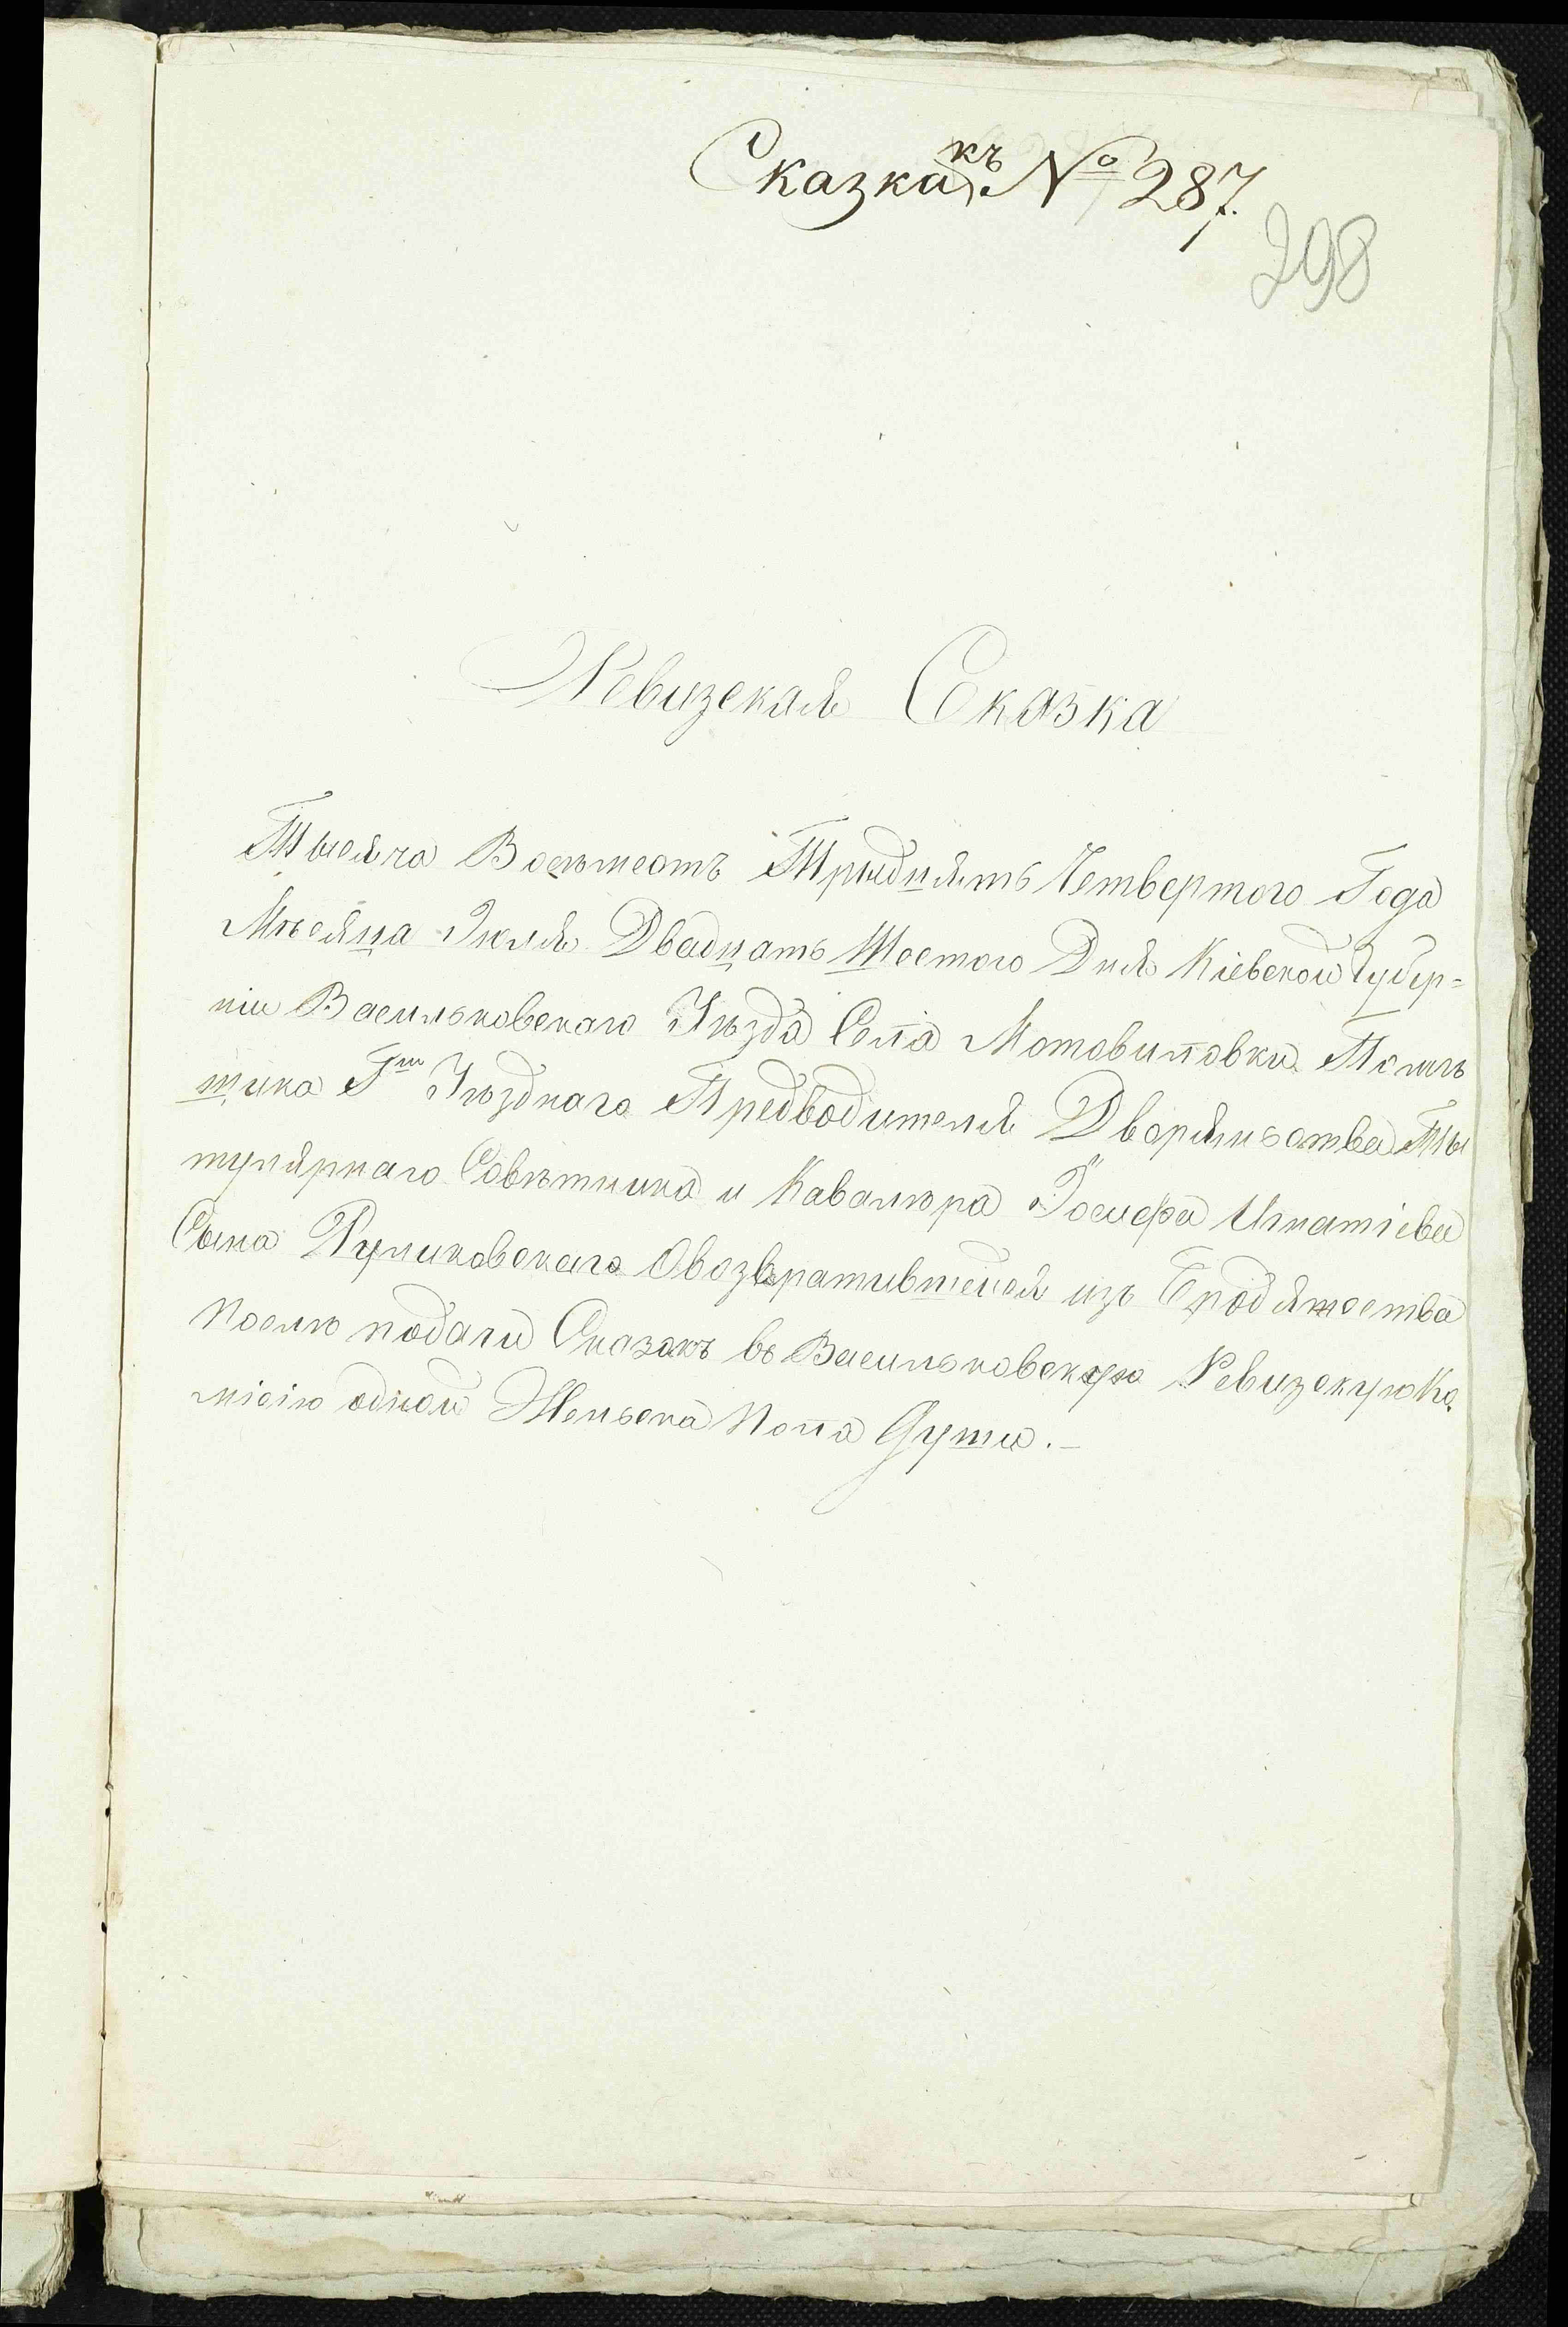 Сказка къ № 287.
298
Ревизская Сказка
Тысяча Восемсотъ Трыдцять Четвертого Года
Мѣсяца Июля Двадцать Шостого Дня Кіевской Губер=
ніи Васильковского Уѣзда Села Мотовиловки Помѣ
щика Уѣздного Предводителя Дворянства Ты
тулярнаго Совѣтника и Кавалѣра Іосифа Игнатіева
Сына Руликовского Овозвратившейся из Бродяжества
Послѣ подачи Сказокъ въ Васильковскую Ревизскую Ко.
місію одной Женьска Пола Души.